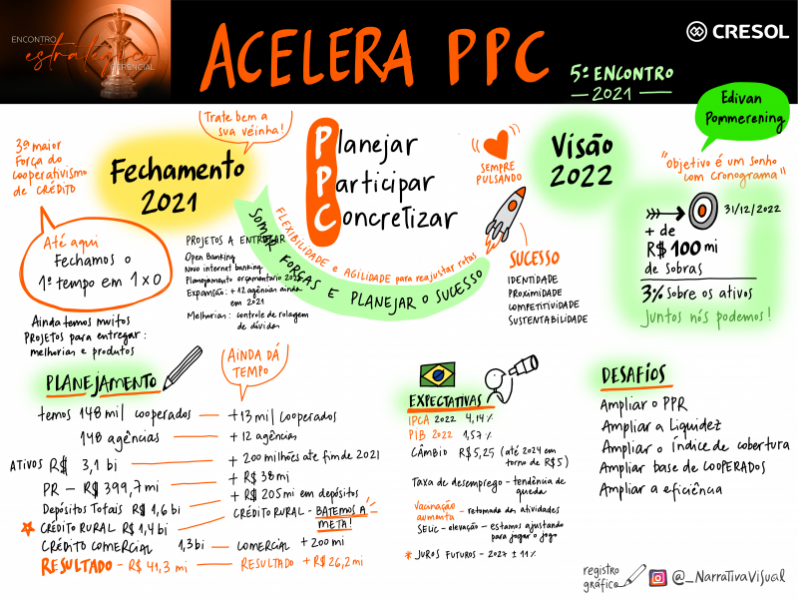 ENCONTRO
estratégico
GERENCIAL
ACELERA PPC
5º ENCONTRO
2021
CRESOL
Edivan
Pommerening
3ª maior
Força do
cooperativismo
de CRÉDITO
Fechamento
2021
Trate bem a
sua veinha!
Planejar
Participar
Concretizar
SEMPRE
PULSANDO
Visão
2022
"objetivo é um sonho
com cronograma"
31/12/2022
+ de
R$ 100 mi
de sobras
3% sobre os ativos
Juntos nós podemos!
Até aqui
Fechamos o
1º tempo em 1x0
Ainda temos muitos
PROJETOS para entregar:
melhorias e produtos
PROJETOS A ENTREGAR
Open Banking
Novo internet banking
Planejamento orçamentário 2022
Expansão: +12 agências ainda
em 2021
Melhorias: controle de rolagem
de dívidas
FLEXIBILIDADE e AGILIDADE para reajustar rotas
SOMAR FORÇAS E PLANEJAR O SUCESSO
SUCESSO
IDENTIDADE
PROXIMIDADE
COMPETITIVIDADE
SUSTENTABILIDADE
PLANEJAMENTO
AINDA DÁ
TEMPO
temos 148 mil cooperados — +13 mil cooperados
148 agências — +12 agências
ATIVOS R$ 3,1 bi — + 200 milhões até fim de 2021
PR — R$ 399,7 mi — + R$ 38 mi
Depósitos Totais R$ 1,6 bi — + R$ 205 mi em depósitos
CRÉDITO RURAL R$ 1,4 bi — CRÉDITO RURAL - BATEMOS A
META!
CRÉDITO COMERCIAL 1,3 bi — COMERCIAL +200 mi
RESULTADO - R$ 41,3 mi — RESULTADO + R$ 26,2 mi
EXPECTATIVAS
IPCA 2022 4,14%
PIB 2022 1,57%
CÂMBIO R$ 5,25 (até 2024 em
torno de R$5)
Taxa de desemprego - tendência de
queda
Vacinação
aumenta - retomada das atividades
SELIC - elevação - estamos ajustando
para jogar o jogo
* JUROS FUTUROS - 2027 ± 11%
DESAFIOS
Ampliar o PPR
Ampliar a Liquidez
Ampliar o índice de cobertura
Ampliar base de COOPERADOS
Ampliar a eficiência
registro
gráfico
@_NarrativaVisual